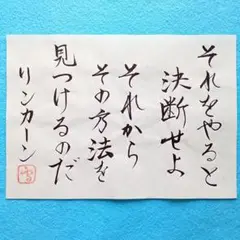 それをやると
決断せよ
それから
その方法を
見つけるのだ
リンカーン